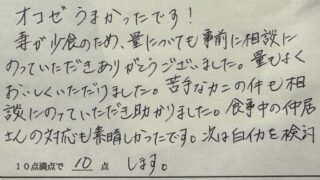 オコゼうまかったです!
妻が少食のため、量についても事前に相談に
のっていただきありがとうございました。量もよく
おいしくいただけました。苦手なカニの件も相
談にのっていただき助かりました。食事中の仲居
さんの対応も素晴しかったです。次は白イカを検討
10点満点で 10 点 します。